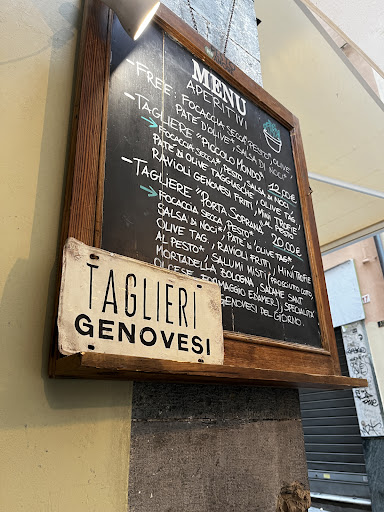 MENU
APERITIVI
- FREE: FOCACCIA SECCA, PESTO, OLIVE
PATÈ D'OLIVE*, SALSA DI NOCI*
- TAGLIERE "PICCOLO MONDO" 12,00€
→ FOCACCIA SECCA, PESTO, SALSA DI NOCI,
PATÈ DI OLIVE TAGGIASCHE, OLIVE TAG.
RAVIOLI GENOVESI FRITTI, MINI TROFIE
- TAGLIERE "PORTA SOPRANA" 20,00€
→ FOCACCIA SECCA, PESTO*
SALSA DI NOCI*, PATÈ DI OLIVE TAG*
OLIVE TAG., RAVIOLI FRITTI, MINI TROFIE
AL PESTO*, SALUMI MISTI (PROSCIUTTO COTTO,
MORTADELLA BOLOGNA, SALAME SANT'
OLCESE, FORMAGGIO EDAMER), SPECIALITA'
GENOVESI DEL GIORNO.
TAGLIERI
GENOVESI
17